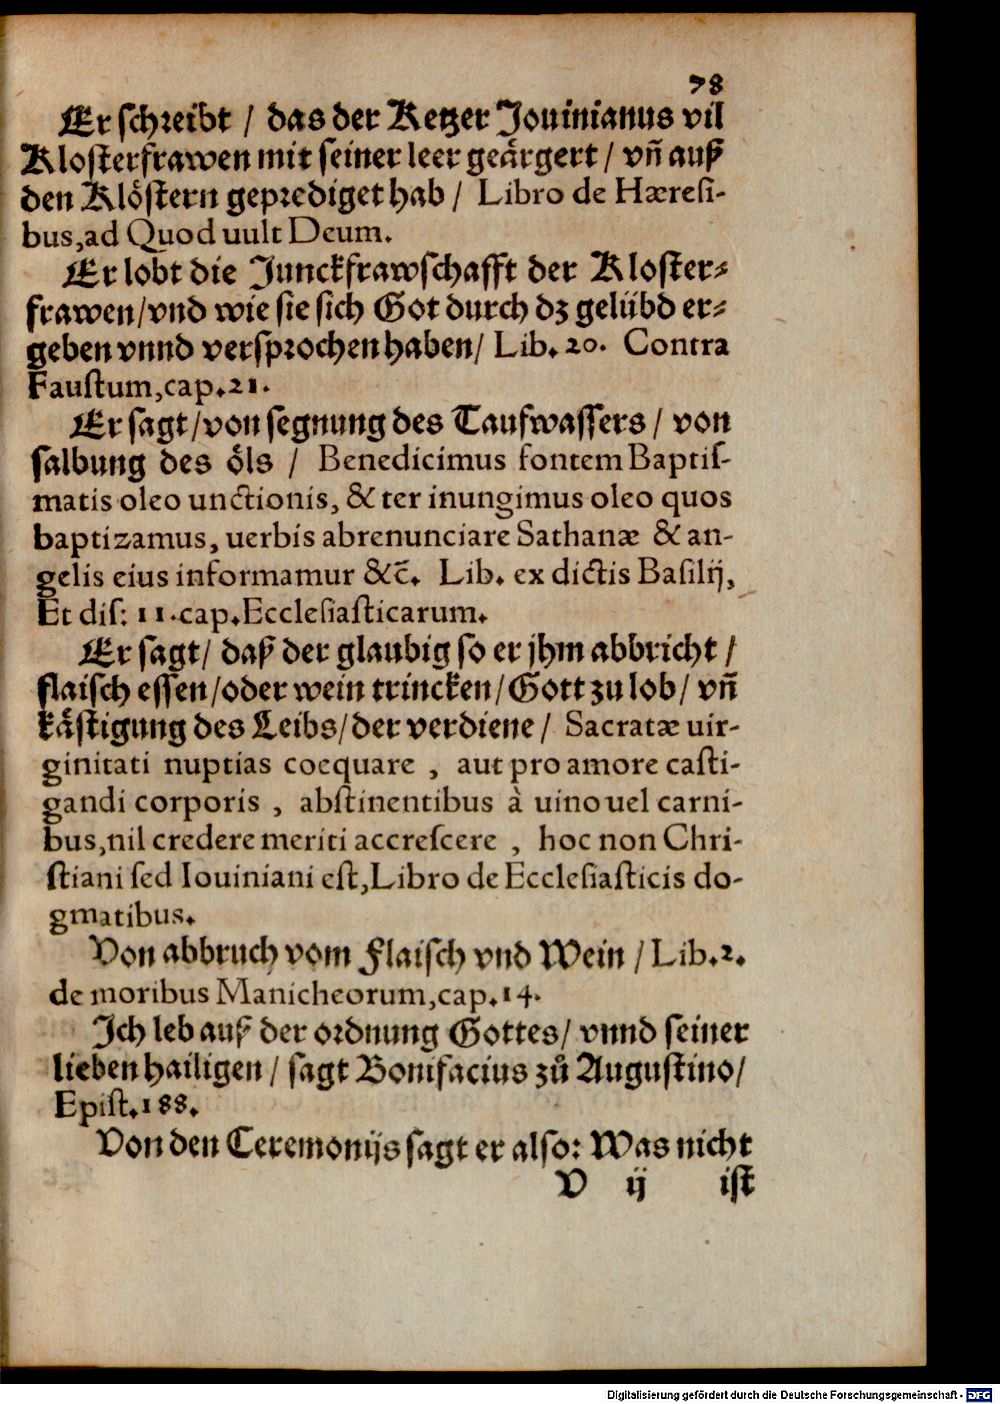 78
Er schreibt / das der Ketzer Jouinianus vil
Klosterfrawen mit seiner leer geärgert / vñ auß
den Klöstern geprediget hab / Libro de Hæresi-
bus, ad Quod uult Deum.
Er lobt die Junckfrawschafft der Kloster-
frawen / vnd wie sie sich Got durch dz gelübd er-
geben vnnd versprochen haben / Lib. 20. Contra
Faustum, cap. 21.
Er sagt / von segnung des Taufwassers / von
salbung des öls / Benedicimus fontem Baptis-
matis oleo unctionis, & ter inungimus oleo quos
baptizamus, uerbis abrenunciare Sathanæ & an-
gelis eius informamur &c̃. Lib. ex dictis Basilij,
Et dis: 11. cap. Ecclesiasticarum.
Er sagt / daß der glaubig so er jhm abbricht /
flaisch essen / oder wein trincken / Gott zu lob / vñ
kästigung des Leibs / der verdiene / Sacratæ uir-
ginitati nuptias coequare, aut pro amore casti-
gandi corporis, abstinentibus à uino uel carni-
bus, nil credere meriti accrescere, hoc non Chri-
stiani sed Iouiniani est, Libro de Ecclesiasticis do-
gmatibus.
Von abbruch vom Flaisch vnd Wein / Lib. 2.
de moribus Manicheorum, cap. 14.
Ich leb auß der ordnung Gottes / vnnd seiner
lieben hailigen / sagt Bonifacius zů Augustino /
Epist. 188.
Von den Ceremonijs sagt er also: Was nicht
V ij ist
Digitalisierung gefördert durch die Deutsche Forschungsgemeinschaft - DFG